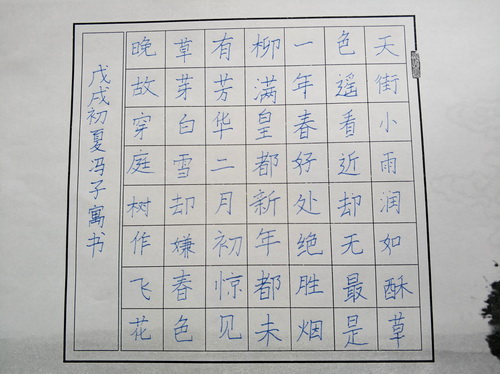 天街小雨润如酥草
色遥看近却无最是
一年春好处绝胜烟
柳满皇都新年都未
有芳华二月初惊见
草芽白雪却嫌春色
晚故穿庭树作飞花
戊戌初夏冯子寓书